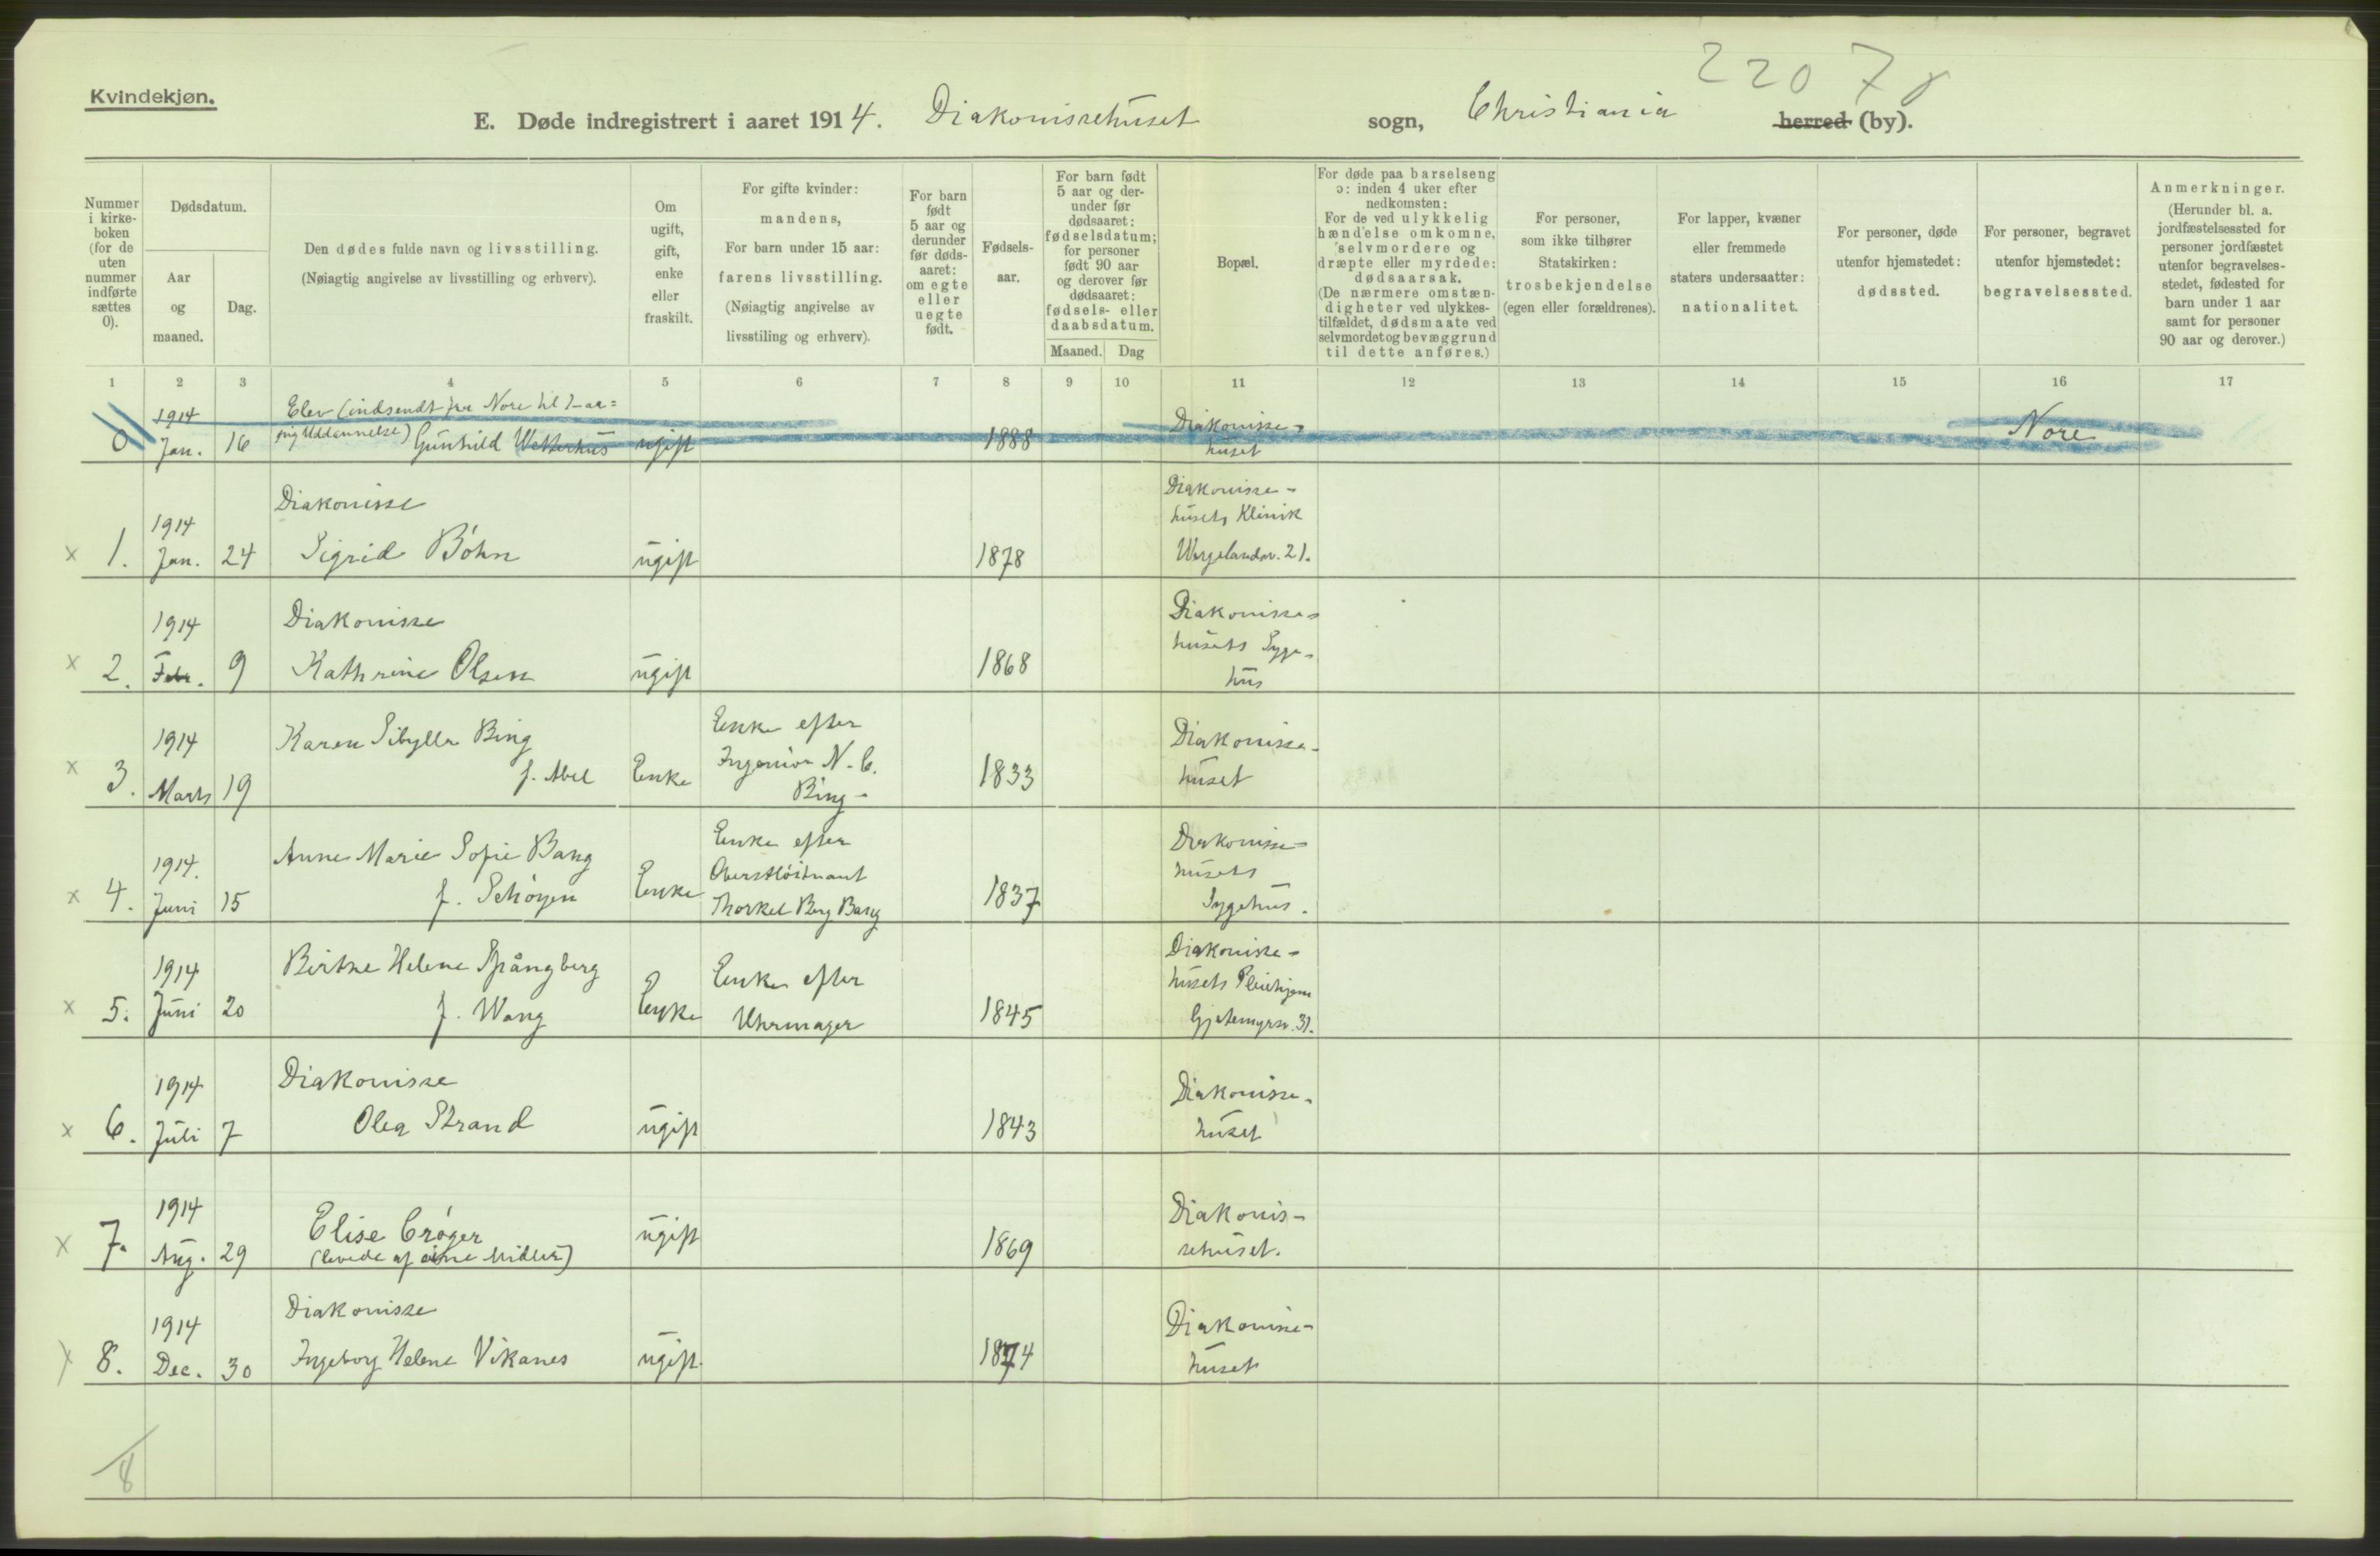 2 20 7 8
Kvindekjøn.
E. Døde indregistrert i aaret 1914. Diakonissehuset sogn, Christiania herred (by).
Nummer i kirke-boken (for de uten nummer indførte sættes 0).
Dødsdatum.
Aar og maaned.
Dag.
Den dødes fulde navn og livsstilling.
(Nøiagtig angivelse av livsstilling og erhverv).
Om ugift, gift, enke eller fraskilt.
For gifte kvinder: mandens,
For barn under 15 aar: farens livsstilling.
(Nøiagtig angivelse av livsstiling og erhverv).
For barn født 5 aar og derunder før døds-aaret: om egte eller uegte født.
Fødsels-aar.
For barn født 5 aar og der-under før dødsaaret: fødselsdatum; for personer født 90 aar og derover før dødsaaret: fødsels- eller daabsdatum.
Maaned. Dag
Bopæl.
For døde paa barselseng ɔ: inden 4 uker efter nedkomsten:
For de ved ulykkelig hændelse omkomne, selvmordere og dræpte eller myrdede: dødsaarsak.
(De nærmere omstæn-digheter ved ulykkes-tilfældet, dødsmaate ved selvmordet og bevæggrund til dette anføres.)
For personer, som ikke tilhører Statskirken: trosbekjendelse (egen eller forældrenes).
For lapper, kvæner eller fremmede staters undersaatter: nationalitet.
For personer, døde utenfor hjemstedet: dødssted.
For personer, begravet utenfor hjemstedet: begravelsessted.
Anmerkninger.
(Herunder bl. a. jordfæstelsessted for personer jordfæstet utenfor begravelses-stedet, fødested for barn under 1 aar samt for personer 90 aar og derover.)
1 2 3 4 5 6 7 8 9 10 11 12 13 14 15 16 17
1914 Elev (indsendt fra Nore til 1-aa= Diakonisse-
0 Jan. 16 rig Uddannelse) Gunhild ugift 1888 huset Nore
Diakonisse Diakonisse-
1914 husets Klinik
x 1. Jan. 24 Sigrid Böhn ugift 1878 Wergelandsv. 21.
1914 Diakonisse Diakonisse-
x 2. Febr. 9 Kathrine Olsen ugift 1868 husets Syge-
hus
1914 Karen Sibylla Bing Enke efter Diakonisse-
x 3. Marts 19 f. Abel Enke Ingeniör N. C. 1833 huset
Bing -
1914. Anne Marie Sofie Bang Enke efter Diakonisse-
Oberstlöitnant husets
x 4. Juni 15 f. Schöyen Enke Thorkel Berg Bang 1837 Sygehus.
1914 Birthe Helene Spångberg Enke efter Diakonisse-
husets Pleiehjem
x 5. Juni 20 f. Wang Enke Uhrmager 1845 Gjetemyrsv. 31.
1914 Diakonisse Diakonisse-
x 6. Juli 7 Olea Strand ugift 1843 huset
1914 Diakonis-
x 7. Aug. 29 Elise Cröger ugift 1869 sehuset.
(levede af egne Midler)
1914 Diakonisse Diakonisse-
x 8. Dec. 30 Ingeborg Helene Vikanes ugift. 1874 huset
8